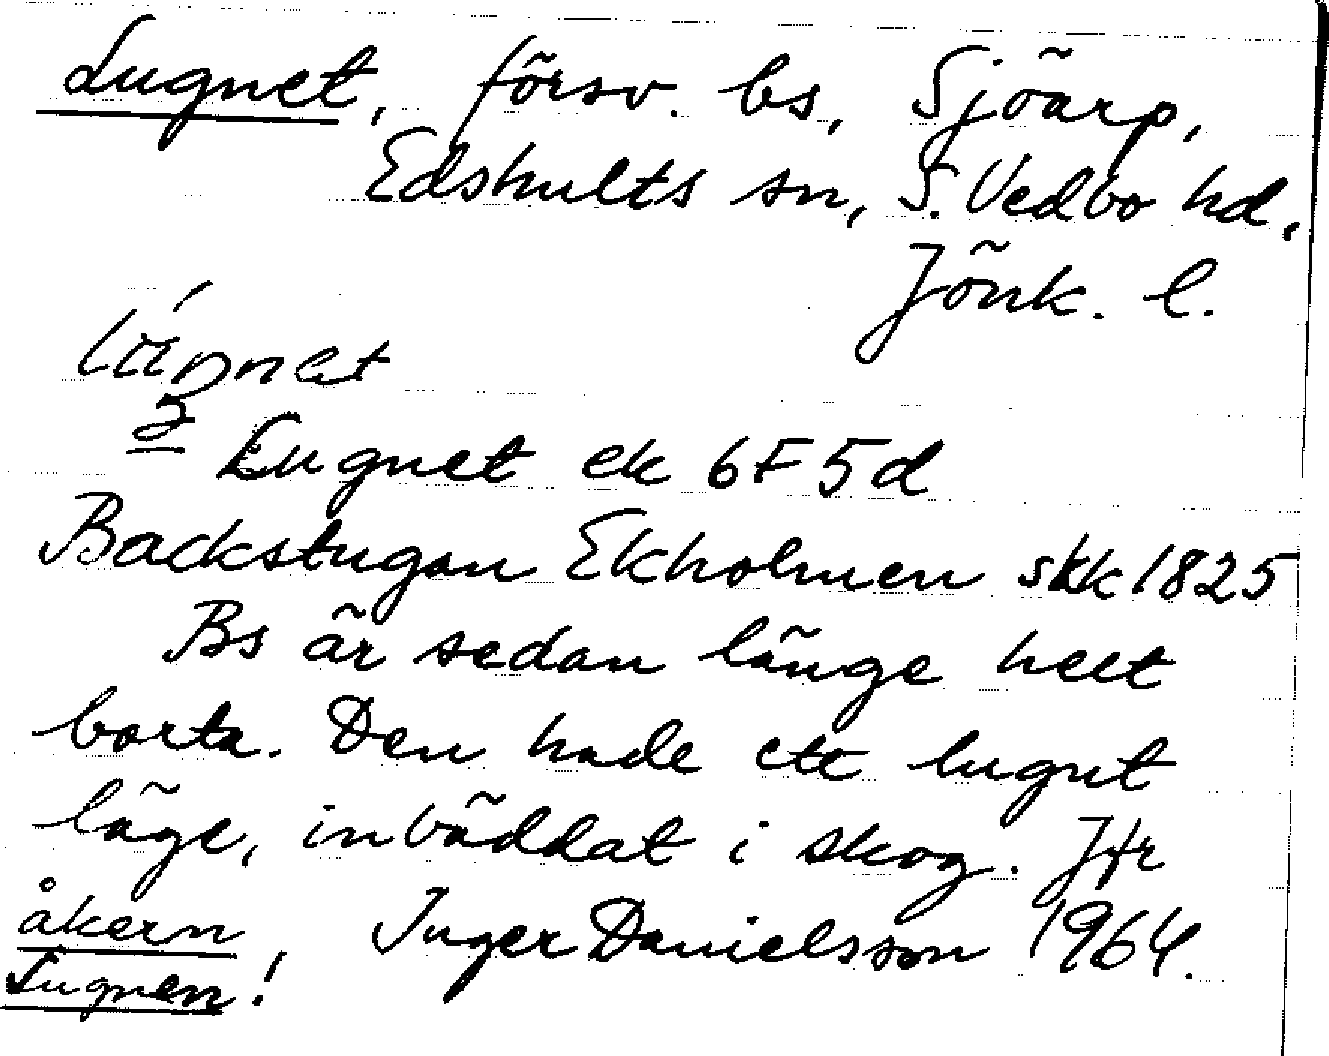 Lugnet, försv. bs, Sjöarp,
Edshults sn, S. Vedbo hd,
Jönk. l.
Lugnet ek 6F5d
Backstugan Ekholmen skk 1825
Bs är sedan länge helt
borta. Den hade ett lugnt
läge, inbäddat i skog. Jfr
åkern Inger Danielsson 1964.
Lugnen!